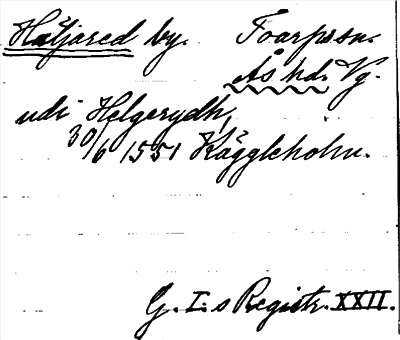 Hätjared by. Toarps sn.
Ås hd. Vg.
udi Helgerydh,
30/6 1551 Käggleholm.
G. I:s Registr. XXII.